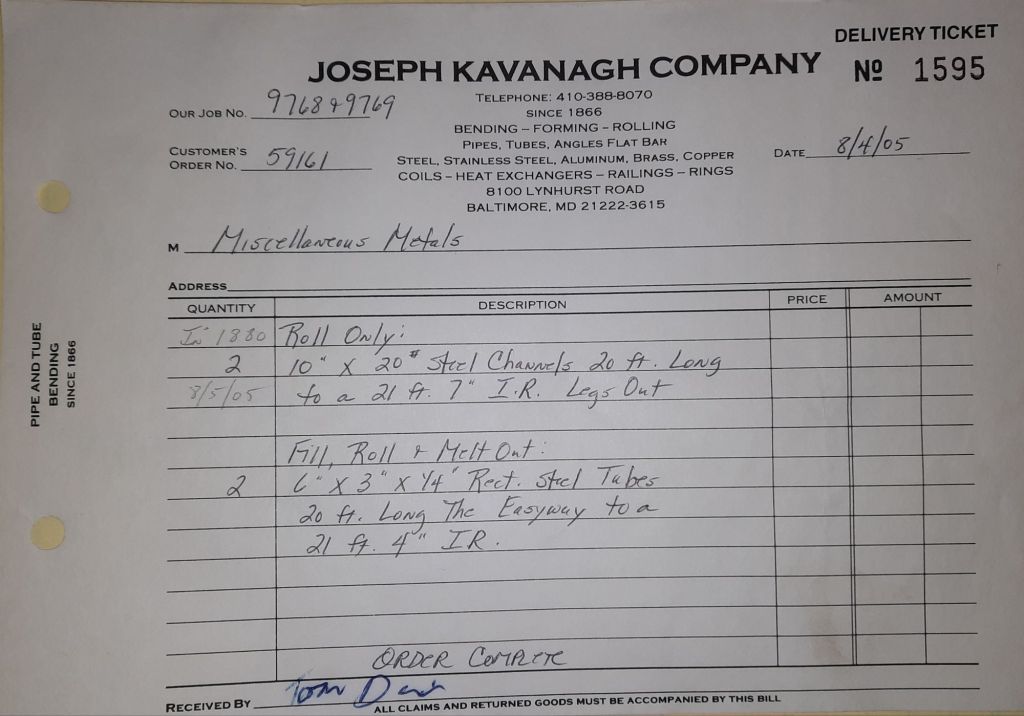 DELIVERY TICKET
JOSEPH KAVANAGH COMPANY
Nº 1595
TELEPHONE: 410-388-8070
OUR JOB NO. 9768 & 9769
SINCE 1866
BENDING – FORMING – ROLLING
PIPES, TUBES, ANGLES FLAT BAR
CUSTOMER'S
ORDER NO. 59161
STEEL, STAINLESS STEEL, ALUMINUM, BRASS, COPPER
DATE 8/4/05
COILS – HEAT EXCHANGERS – RAILINGS – RINGS
8100 LYNHURST ROAD
BALTIMORE, MD 21222-3615
M Miscellaneous Metals
ADDRESS
QUANTITY DESCRIPTION PRICE AMOUNT
In 1880 Roll Only:
2 10" X 20# Steel Channels 20 ft. Long
8/5/05 to a 21 ft. 7" I.R. Legs Out
Fill, Roll & Melt Out:
2 6" X 3" X 1/4" Rect. Steel Tubes
20 ft. Long The Easyway to a
21 ft. 4" IR.
ORDER COMPLETE
RECEIVED BY Tom
ALL CLAIMS AND RETURNED GOODS MUST BE ACCOMPANIED BY THIS BILL
PIPE AND TUBE
BENDING
SINCE 1866